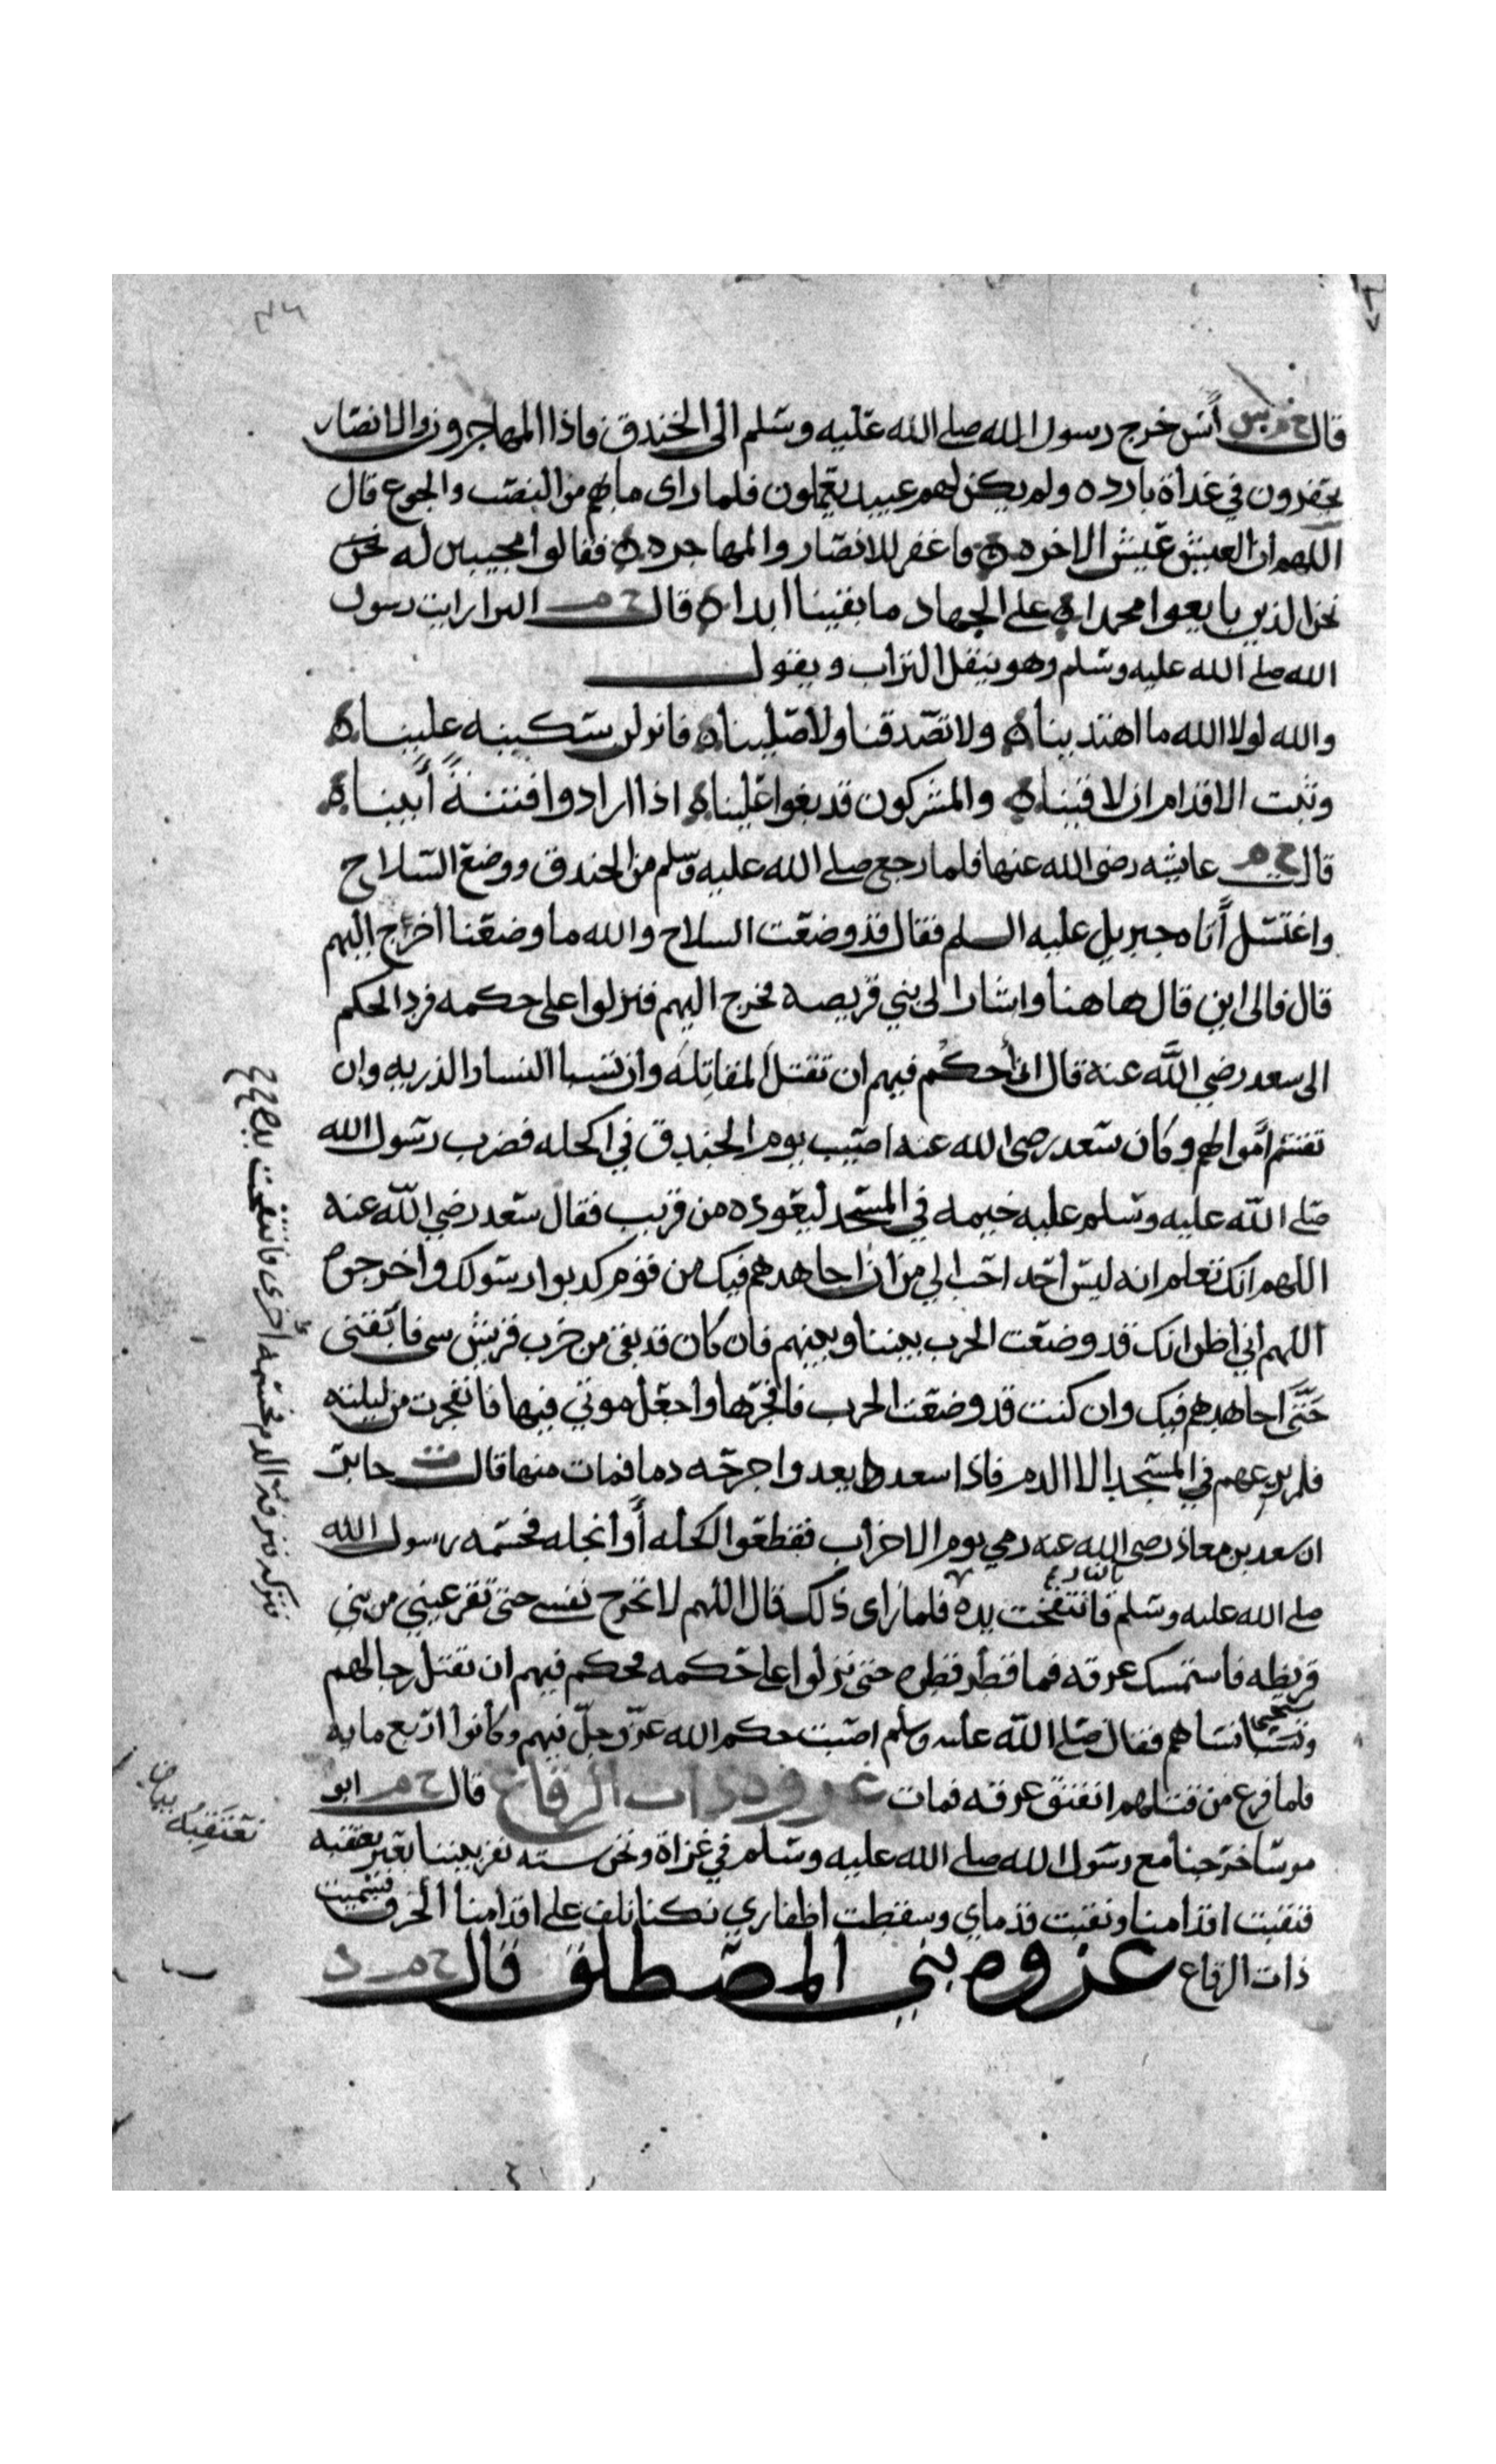 قال خ م س أنس خرج رسول الله صلى الله عليه وسلم الى الخندق فاذا المهاجرون والانصار
يحفرون في غداة بارده ولم يكن لهم عبيد يعملون فلما راى ما بهم من النصب والجوع قال
اللهم ان العيش عيش الاخره ٥ فاغفر للانصار والمهاجره ٥ فقالوا مجيبين له نحن
نحن الذين بايعوا محمدا ٥ على الجهاد ما بقينا ابدا ٥ قال خ م البرا رايت رسول
الله صلى الله عليه وسلم وهو ينقل التراب ويقول
والله لولا الله ما اهتدينا ٥ ولا تصدقنا ولا صلينا ٥ فانزلن سكينه علينا ٥
وثبت الاقدام ان لاقينا ٥ والمشركون قد بغوا علينا ٥ اذا ارادوا فتنةً أبينا ٥
قال خ م عايشه رضى الله عنها فلما رجع صلى الله عليه وسلم من الخندق ووضع السلاح
واغتسل أتاه جبريل عليه السلم فقال قد وضعت السلاح والله ما وضعنا اخرج اليهم
قال فالى اين قال هاهنا واشار الى بني قريصه فخرج اليهم فنزلوا على حكمه فرد الحكم
الى سعد رضي الله عنه قال اني أحكم فيهم ان تقتل المقاتله وان تسبا النسا والذريه وان
تقسم اموالهم وكان سعد رضى الله عنه اصيب يوم الخندق في اكحله فضرب رسول الله
صلى الله عليه وسلم عليه خيمه في المسجد ليعوده من قريب فقال سعد رضي الله عنه
اللهم انك تعلم انه ليس احد احب الي من ان اجاهدهم فيك من قوم كذبوا رسولك واخرجوه
اللهم اني اظن انك قد وضعت الحرب بيننا وبينهم فان كان قد بقي من حرب قريش شى فابقنى
حتى اجاهدهم فيك وان كنت قد وضعت الحرب فافجرها واجعل موتي فيها فانفجرت من ليلته
فلم يرعهم في المسجد الا الدم فاذا سعد يغدوا جرحه دما فمات منها قال ت جابر
ان سعد بن معاذ رضى الله عنه رمي يوم الاحزاب فقطعوا اكحله أو انجله فحسمه رسول الله
صلى الله عليه وسلم بالنار فانتفخت يده فلما راى ذلك قال اللهم لا تخرج نفسي حتى تقر عيني من بني
قريظه فاستمسك عرقه فما قطر قطره حتى نزلوا على حكمه فحكم فيهم ان تقتل رجالهم
وتستحيى نساهم فقال صلى الله عليه وسلم اصبت حكم الله عز وجل فيهم وكانوا اربع مايه
فلما فرغ من قتلهم انفتق عرقه فمات غزوه ذات الرقاع قال خ م ابو
موسا خرجنا مع رسول الله صلى الله عليه وسلم في غزاة ونحن سته نفر بيننا بعير نعتقبه
فنقبت اقدامنا ونقبت قدماي وسقطت اظفاري فكنا نلف على اقدامنا الخرق فسميت
ذات الرقاع غزوه بني المصطلق قال خ م د
فتركه فنزفه الدم فحسمه أخرى فانتفخت يده صح
نعتقبه بيان